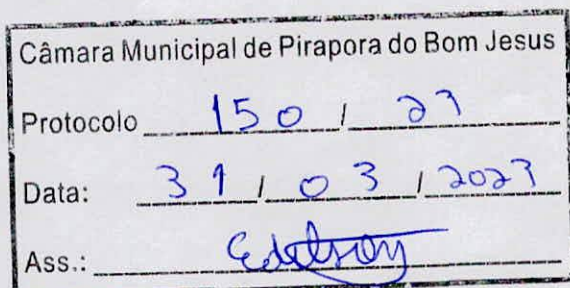 Câmara Municipal de Pirapora do Bom Jesus
Protocolo 150 / 23
Data: 31 / 03 / 2023
Ass.: